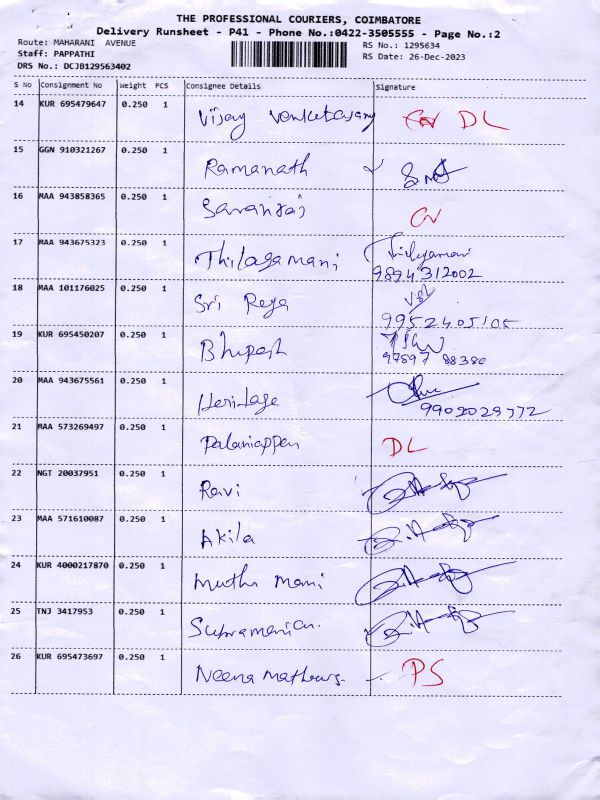 THE PROFESSIONAL COURIERS, COIMBATORE
Delivery Runsheet - P41 - Phone No.:0422-3505555 - Page No.:2
Route: MAHARANI AVENUE
Staff: PAPPATHI
DRS No.: DCJB129563402
RS No.: 1295634
RS Date: 26-Dec-2023
S No Consignment No Weight PCS Consignee Details Signature
14 KUR 695479647 0.250 1 Vijay DL
15 GGN 910321267 0.250 1 Ramanath
16 MAA 943858365 0.250 1
17 MAA 943675323 0.250 1 Thilagamani
9894312002
18 MAA 101176025 0.250 1 Sri
19 KUR 695450207 0.250 1 Bhupesh
97897 88380
20 MAA 943675561 0.250 1 Heritage
21 MAA 573269497 0.250 1 Palaniappan DL
22 NGT 20037951 0.250 1 Ravi
23 MAA 571610087 0.250 1 Akila
24 KUR 4000217870 0.250 1 Muthu Mani
25 TNJ 3417953 0.250 1
26 KUR 695473697 0.250 1 Neena Mathews PS